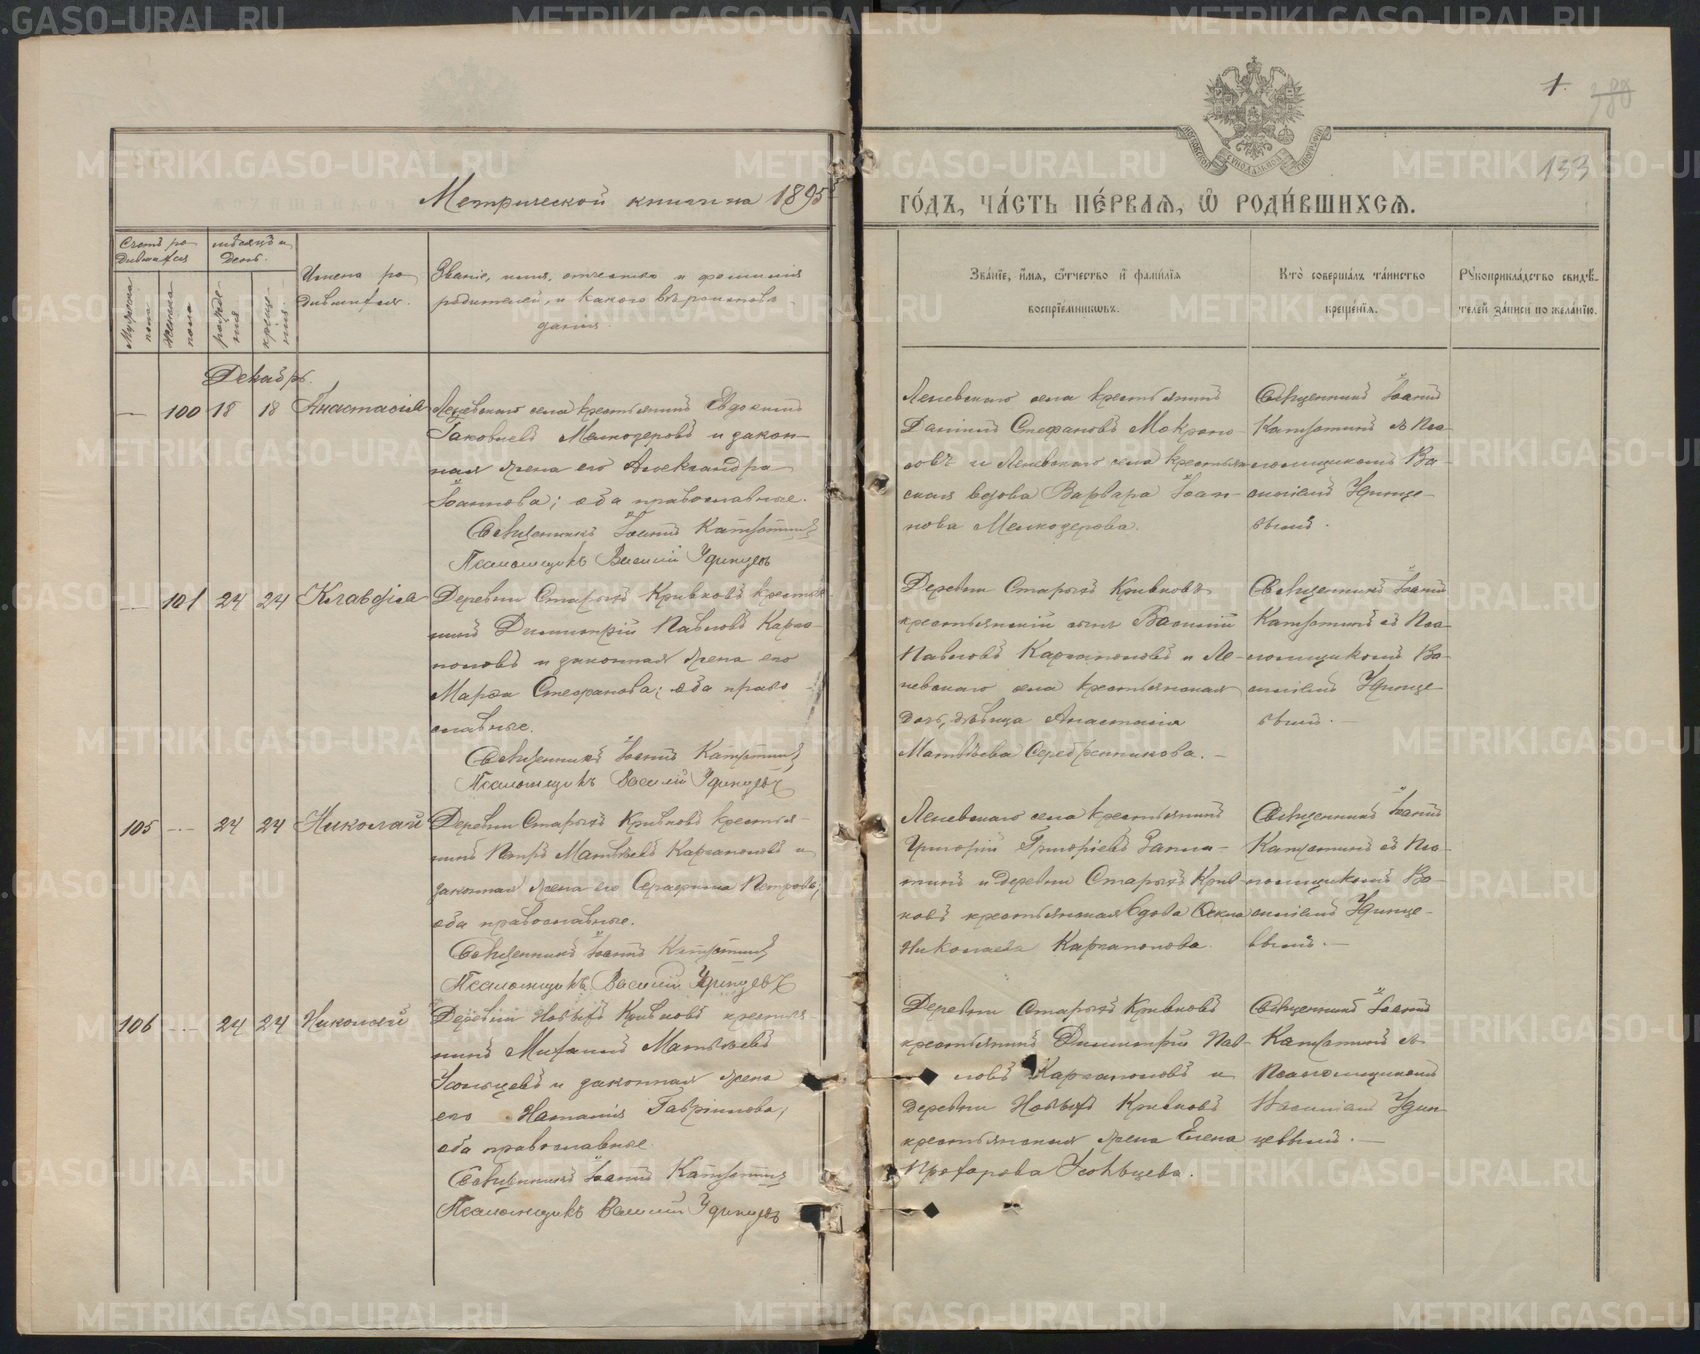 1.
380
133
Метрической книги на 1895
го́дъ, ча́сть пе́рваѧ, ѡ҆ роди́вшихсѧ.
Счетъ родившихся
Мѣсяцъ и день.
Мужска пола
Женска пола
рожденія
крещенія.
Имена родившихся.
Званіе, имя, отчество и фамилія
родителей, и какого вѣроисповѣ-
данія.
Зва́нїе, и҆́мѧ, ѻ҆́тчество и҆ фами́лїѧ
воспрїе́мникѡвъ.
Кто̀ соверша́лъ та́инство
креще́нїѧ.
Рꙋкоприкла́дство свидѣ́-
телей за́писи по жела́нїю.
Декабрь.
— 100 18 18 Анастасія
Леневскаго села крестьянинъ Евдокимъ
Іаковлевъ Мелкозеровъ и закон-
ная жена его Александра
Іоаннова; оба православные.
Священникъ Іоаннъ
Псаломщикъ Василій Удинцевъ
Леневскаго села крестьянинъ
Даніилъ Стефановъ Мокроно-
совъ и Леневскаго села крестьян-
ская вдова Варвара Іоан-
нова Мелкозерова.
Священникъ Іоаннъ
съ Пса-
ломщикомъ Ва-
силіемъ Удинце-
вымъ.
— 101 24 24 Клавдія
Деревни Старыхъ Кривковъ крестья-
нинъ Димитрій Павловъ Карга-
половъ и законная жена его
Марѳа Стефанова; оба право-
славные.
Священникъ Іоаннъ
Псаломщикъ Василій Удинцевъ
Деревни Старыхъ Кривковъ
крестьянскій сынъ Василій
Павловъ Каргаполовъ и Ле-
невскаго села крестьянская
дочь, дѣвица Анастасія
Матвѣева Серебренникова. —
Священникъ Іоаннъ
съ Пса-
ломщикомъ Ва-
силіемъ Удинце-
вымъ. —
105 — 24 24 Николай
Деревни Старыхъ Кривковъ крестья-
нинъ Петръ Матвѣевъ Каргаполовъ и
законная жена его Серафима Петрова;
оба православные.
Священникъ Іоаннъ
Псаломщикъ Василій Удинцевъ
Леневскаго села крестьянинъ
Григорій Григорьевъ
и деревни Старыхъ Крив-
ковъ крестьянская вдова
Николаева Каргаполова.
Священникъ Іоаннъ
съ Пса-
ломщикомъ Ва-
силіемъ Удинце-
вымъ. —
106 — 24 24 Николай
Деревни Новыхъ Кривковъ крестья-
нинъ Михаилъ Матвѣевъ
Усольцевъ и законная жена
его Наталія Гавріилова;
оба православные.
Священникъ Іоаннъ
Псаломщикъ Василій Удинцевъ
Деревни Старыхъ Кривковъ
крестьянинъ Димитрій Пав-
ловъ Каргаполовъ и
деревни Новыхъ Кривковъ
крестьянская жена Елена
Прохорова Усольцева.
Священникъ Іоаннъ
съ
Псаломщикомъ
Василіемъ Удин-
цевымъ. —
METRIKI.GASO-URAL.RU